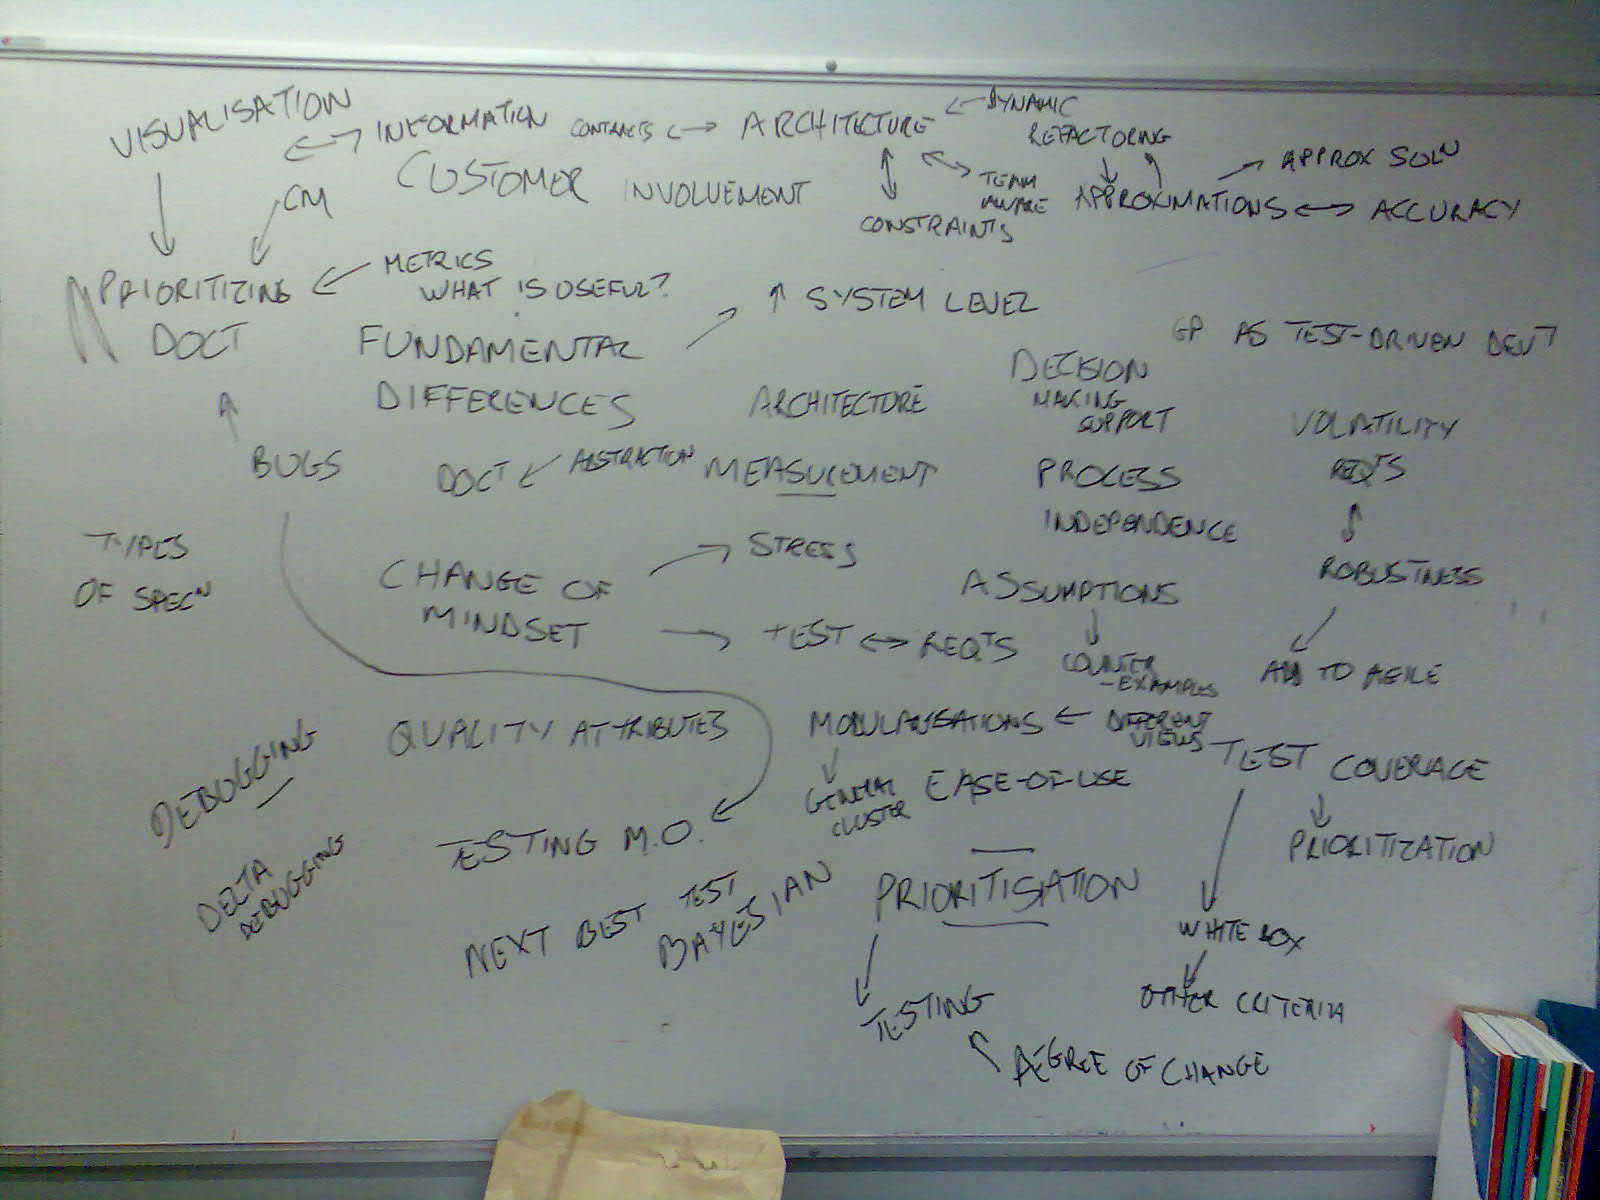 VISUALISATION
INFORMATION
CONTRACTS
ARCHITECTURE
DYNAMIC
REFACTORING
APPROX SOLN
CM
CUSTOMER INVOLVEMENT
TEAM
AWARE
CONSTRAINTS
APPROXIMATIONS
ACCURACY
PRIORITIZING
DOCT
METRICS
WHAT IS USEFUL?
FUNDAMENTAL
DIFFERENCES
SYSTEM LEVEL
GP AS TEST-DRIVEN DEVT
DECISION
MAKING
SUPPORT
ARCHITECTURE
VOLATILITY
REQTS
BUGS
DOCT
ABSTRACTION
MEASUREMENT
PROCESS
INDEPENDENCE
TYPES
OF SPECN
CHANGE OF
MINDSET
STRESS
TEST
REQTS
ASSUMPTIONS
COUNTER
-EXAMPLES
ROBUSTNESS
TO AGILE
DEBUGGING
QUALITY ATTRIBUTES
MODULARISATIONS
DIFFERENT
VIEWS
GENERAL
CLUSTER
EASE-OF-USE
TEST COVERAGE
PRIORITIZATION
DELTA
DEBUGGING
TESTING M.O.
NEXT BEST TEST
BAYESIAN
PRIORITISATION
WHITE BOX
OTHER CRITERIA
TESTING
DEGREE OF CHANGE